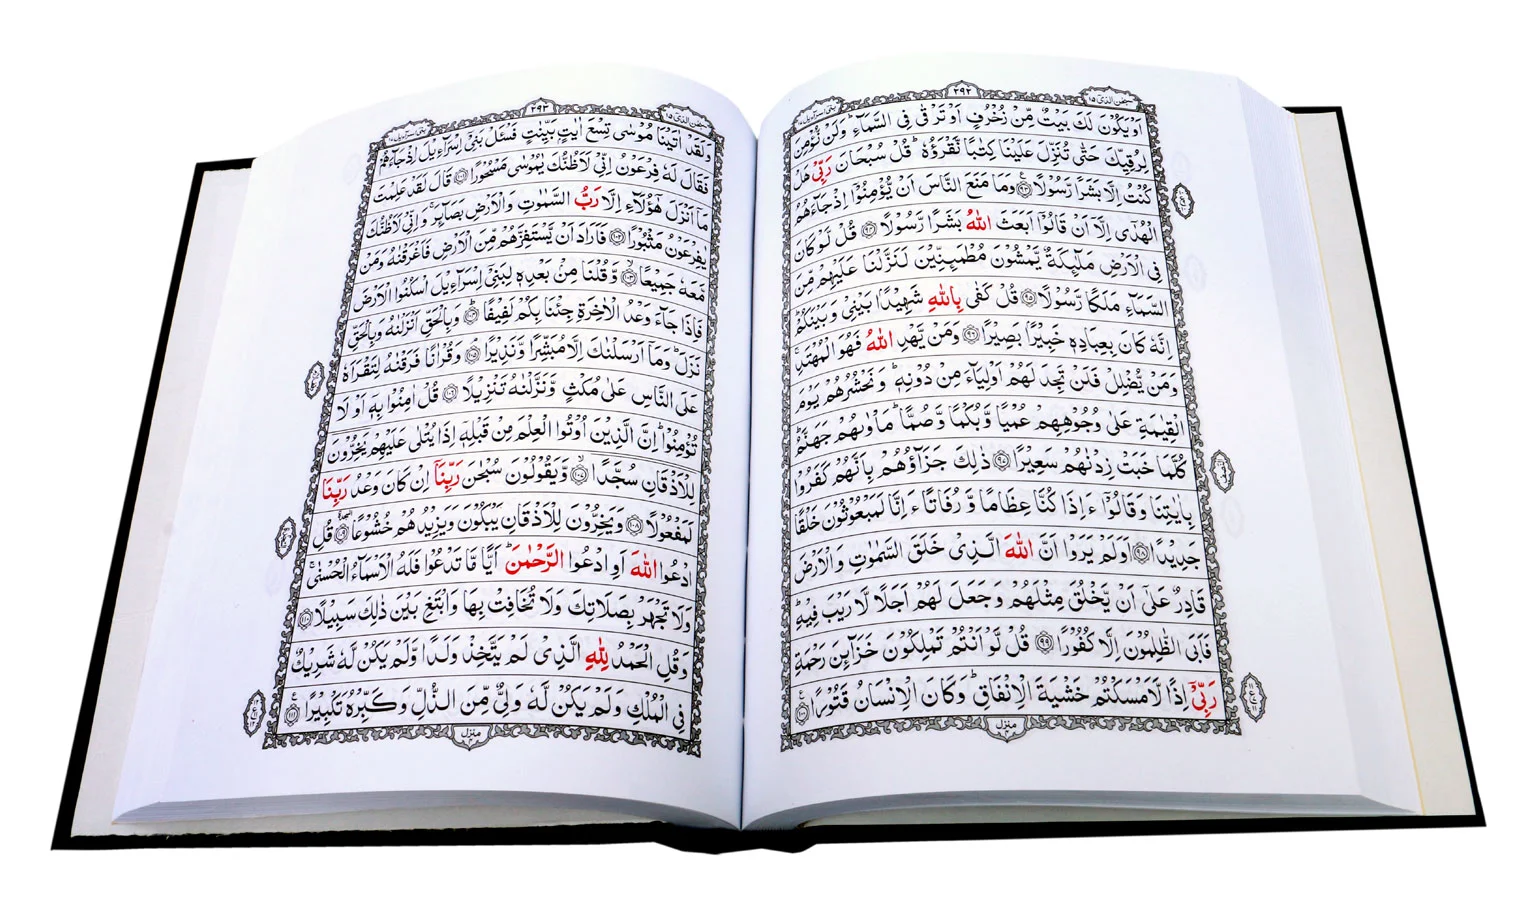 سبحن الذی ١٥
٢٩٢
بنی اسرآءیل ١٧
اَوْ یَكُوْنَ لَكَ بَیْتٌ مِّنْ زُخْرُفٍ اَوْ تَرْقٰی فِی السَّمَآءِ ؕ وَلَنْ نُّؤْمِنَ
لِرُقِیِّكَ حَتّٰی تُنَزِّلَ عَلَیْنَا كِتٰبًا نَّقْرَؤُهٗ ؕ قُلْ سُبْحَانَ رَبِّیْ هَلْ
كُنْتُ اِلَّا بَشَرًا رَّسُوْلًا ﴿٩٣﴾ وَمَا مَنَعَ النَّاسَ اَنْ یُّؤْمِنُوْۤا اِذْ جَآءَهُمُ
الْهُدٰۤی اِلَّاۤ اَنْ قَالُوْۤا اَبَعَثَ اللّٰهُ بَشَرًا رَّسُوْلًا ﴿٩٤﴾ قُلْ لَّوْ كَانَ
فِی الْاَرْضِ مَلٰٓئِكَةٌ یَّمْشُوْنَ مُطْمَئِنِّیْنَ لَنَزَّلْنَا عَلَیْهِمْ مِّنَ
السَّمَآءِ مَلَكًا رَّسُوْلًا ﴿٩٥﴾ قُلْ كَفٰی بِاللّٰهِ شَهِیْدًۢا بَیْنِیْ وَبَیْنَكُمْ ؕ
اِنَّهٗ كَانَ بِعِبَادِهٖ خَبِیْرًۢا بَصِیْرًا ﴿٩٦﴾ وَمَنْ یَّهْدِ اللّٰهُ فَهُوَ الْمُهْتَدِ ۚ
وَمَنْ یُّضْلِلْ فَلَنْ تَجِدَ لَهُمْ اَوْلِیَآءَ مِنْ دُوْنِهٖ ؕ وَنَحْشُرُهُمْ یَوْمَ
الْقِیٰمَةِ عَلٰی وُجُوْهِهِمْ عُمْیًا وَّبُكْمًا وَّصُمًّا ؕ مَاْوٰىهُمْ جَهَنَّمُ ؕ
كُلَّمَا خَبَتْ زِدْنٰهُمْ سَعِیْرًا ﴿٩٧﴾ ذٰلِكَ جَزَآؤُهُمْ بِاَنَّهُمْ كَفَرُوْا
بِاٰیٰتِنَا وَقَالُوْۤا ءَاِذَا كُنَّا عِظَامًا وَّرُفَاتًا ءَاِنَّا لَمَبْعُوْثُوْنَ خَلْقًا
جَدِیْدًا ﴿٩٨﴾ اَوَلَمْ یَرَوْا اَنَّ اللّٰهَ الَّذِیْ خَلَقَ السَّمٰوٰتِ وَالْاَرْضَ
قَادِرٌ عَلٰۤی اَنْ یَّخْلُقَ مِثْلَهُمْ وَجَعَلَ لَهُمْ اَجَلًا لَّا رَیْبَ فِیْهِ ؕ
فَاَبَی الظّٰلِمُوْنَ اِلَّا كُفُوْرًا ﴿٩٩﴾ قُلْ لَّوْ اَنْتُمْ تَمْلِكُوْنَ خَزَآئِنَ رَحْمَةِ
رَبِّیْۤ اِذًا لَّاَمْسَكْتُمْ خَشْیَةَ الْاِنْفَاقِ ؕ وَكَانَ الْاِنْسَانُ قَتُوْرًا ﴿١٠٠﴾
منزل ٤
سبحن الذی ١٥
٢٩٣
بنی اسرآءیل ١٧
وَلَقَدْ اٰتَیْنَا مُوْسٰی تِسْعَ اٰیٰتٍۭ بَیِّنٰتٍ فَسْـَٔلْ بَنِیْۤ اِسْرَآءِیْلَ اِذْ جَآءَهُمْ
فَقَالَ لَهٗ فِرْعَوْنُ اِنِّیْ لَاَظُنُّكَ یٰمُوْسٰی مَسْحُوْرًا ﴿١٠١﴾ قَالَ لَقَدْ عَلِمْتَ
مَاۤ اَنْزَلَ هٰۤؤُلَآءِ اِلَّا رَبُّ السَّمٰوٰتِ وَالْاَرْضِ بَصَآئِرَ ۚ وَاِنِّیْ لَاَظُنُّكَ
یٰفِرْعَوْنُ مَثْبُوْرًا ﴿١٠٢﴾ فَاَرَادَ اَنْ یَّسْتَفِزَّهُمْ مِّنَ الْاَرْضِ فَاَغْرَقْنٰهُ وَمَنْ
مَّعَهٗ جَمِیْعًا ﴿١٠٣﴾ وَّقُلْنَا مِنْۢ بَعْدِهٖ لِبَنِیْۤ اِسْرَآءِیْلَ اسْكُنُوا الْاَرْضَ
فَاِذَا جَآءَ وَعْدُ الْاٰخِرَةِ جِئْنَا بِكُمْ لَفِیْفًا ﴿١٠٤﴾ وَبِالْحَقِّ اَنْزَلْنٰهُ وَبِالْحَقِّ
نَزَلَ ؕ وَمَاۤ اَرْسَلْنٰكَ اِلَّا مُبَشِّرًا وَّنَذِیْرًا ﴿١٠٥﴾ وَقُرْاٰنًا فَرَقْنٰهُ لِتَقْرَاَهٗ
عَلَی النَّاسِ عَلٰی مُكْثٍ وَّنَزَّلْنٰهُ تَنْزِیْلًا ﴿١٠٦﴾ قُلْ اٰمِنُوْا بِهٖۤ اَوْ لَا
تُؤْمِنُوْا ؕ اِنَّ الَّذِیْنَ اُوْتُوا الْعِلْمَ مِنْ قَبْلِهٖۤ اِذَا یُتْلٰی عَلَیْهِمْ یَخِرُّوْنَ
لِلْاَذْقَانِ سُجَّدًا ﴿١٠٧﴾ وَّیَقُوْلُوْنَ سُبْحٰنَ رَبِّنَاۤ اِنْ كَانَ وَعْدُ رَبِّنَا
لَمَفْعُوْلًا ﴿١٠٨﴾ وَیَخِرُّوْنَ لِلْاَذْقَانِ یَبْكُوْنَ وَیَزِیْدُهُمْ خُشُوْعًا ﴿١٠٩﴾ قُلِ
ادْعُوا اللّٰهَ اَوِ ادْعُوا الرَّحْمٰنَ ؕ اَیًّا مَّا تَدْعُوْا فَلَهُ الْاَسْمَآءُ الْحُسْنٰی ۚ
وَلَا تَجْهَرْ بِصَلَاتِكَ وَلَا تُخَافِتْ بِهَا وَابْتَغِ بَیْنَ ذٰلِكَ سَبِیْلًا ﴿١١٠﴾
وَقُلِ الْحَمْدُ لِلّٰهِ الَّذِیْ لَمْ یَتَّخِذْ وَلَدًا وَّلَمْ یَكُنْ لَّهٗ شَرِیْكٌ
فِی الْمُلْكِ وَلَمْ یَكُنْ لَّهٗ وَلِیٌّ مِّنَ الذُّلِّ وَكَبِّرْهُ تَكْبِیْرًا ﴿١١١﴾
منزل ٤